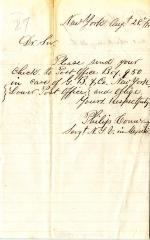 27
New York Augt 26/
Dr Sir
Please send your
Check to Post Office Box 750
in care of G. B. & Co. New York
(Lower Post Office) and oblige
Yours Respectfully
Philip
Surgt N.G.V. in